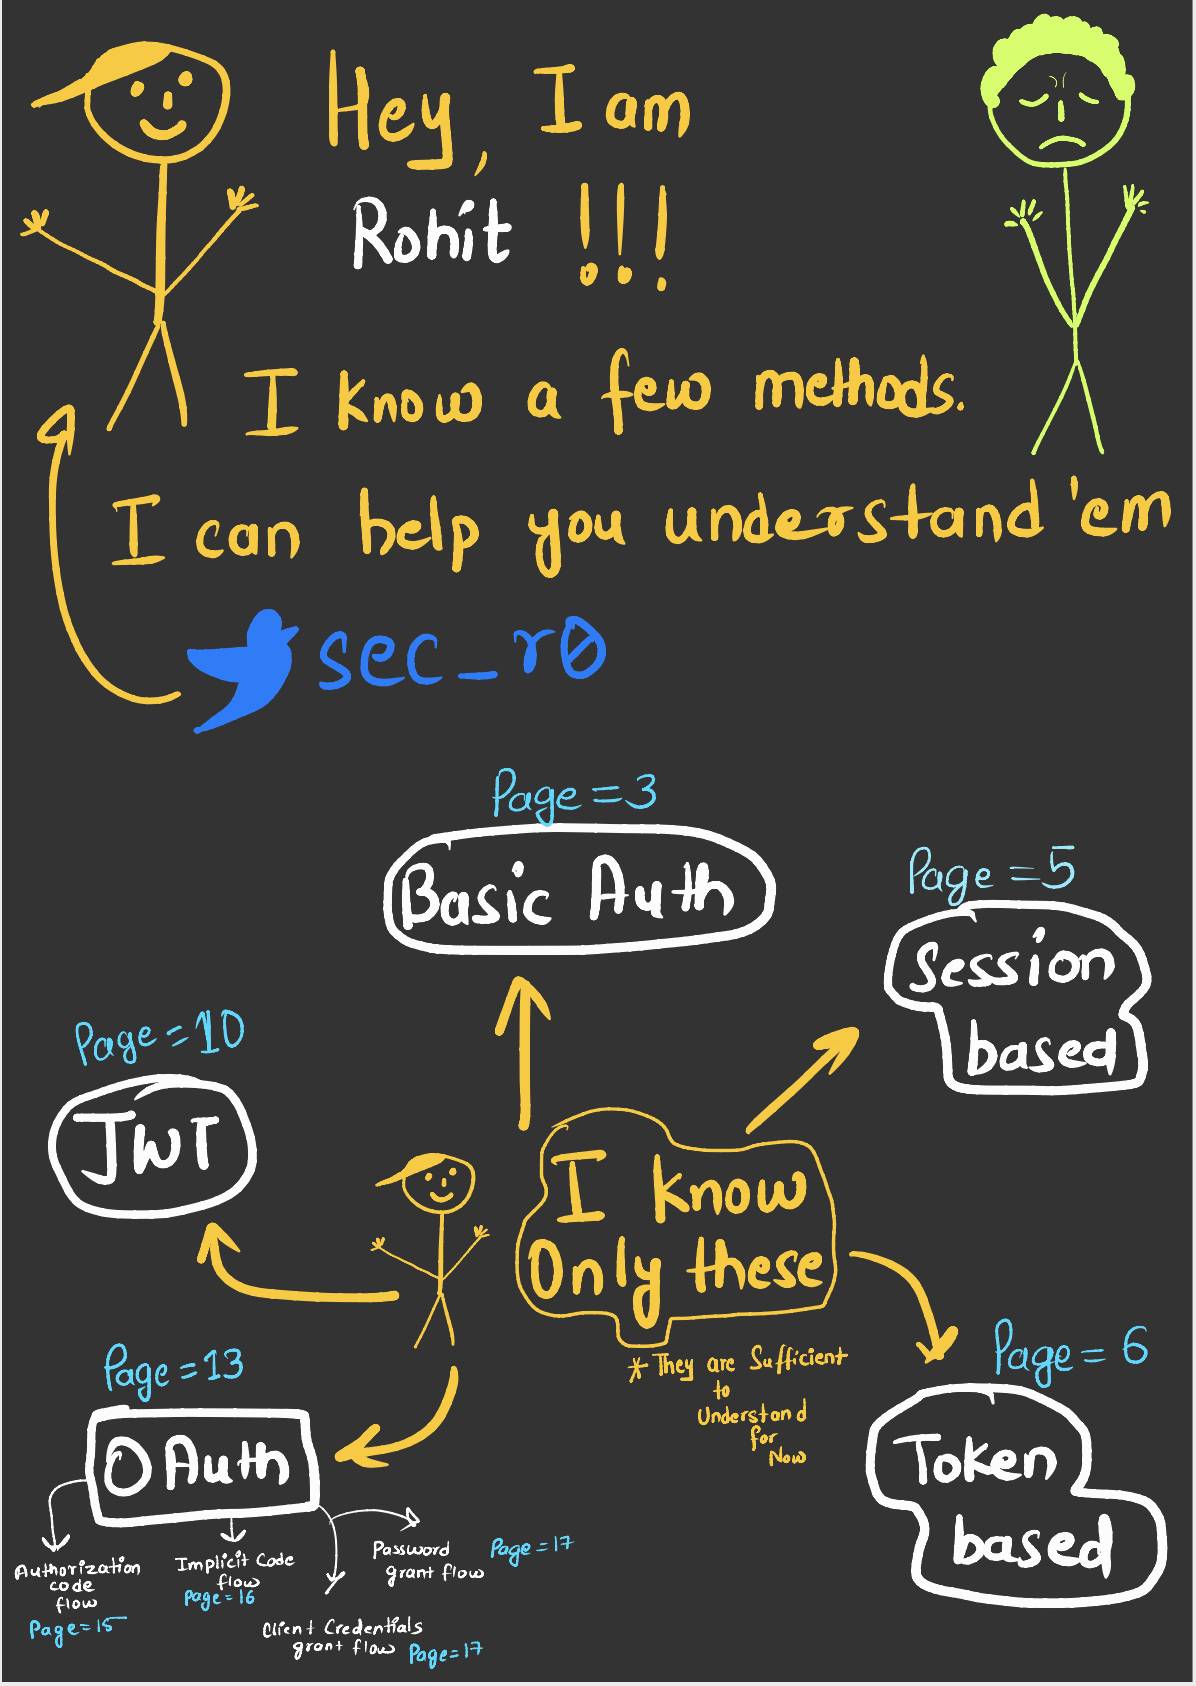 Hey, I am
Rohit !!!
I know a few methods.
I can help you understand 'em
sec_r0
Page = 3
Basic Auth
Page = 5
Session
based
Page = 10
JWT
I know
Only these
* They are Sufficient
to
Understand
for
Now
Page = 6
Token
based
Page = 13
OAuth
Authorization
code
flow
Page = 15
Implicit Code
flow
Page = 16
Password
grant flow
Page = 17
Client Credentials
grant flow
Page = 17